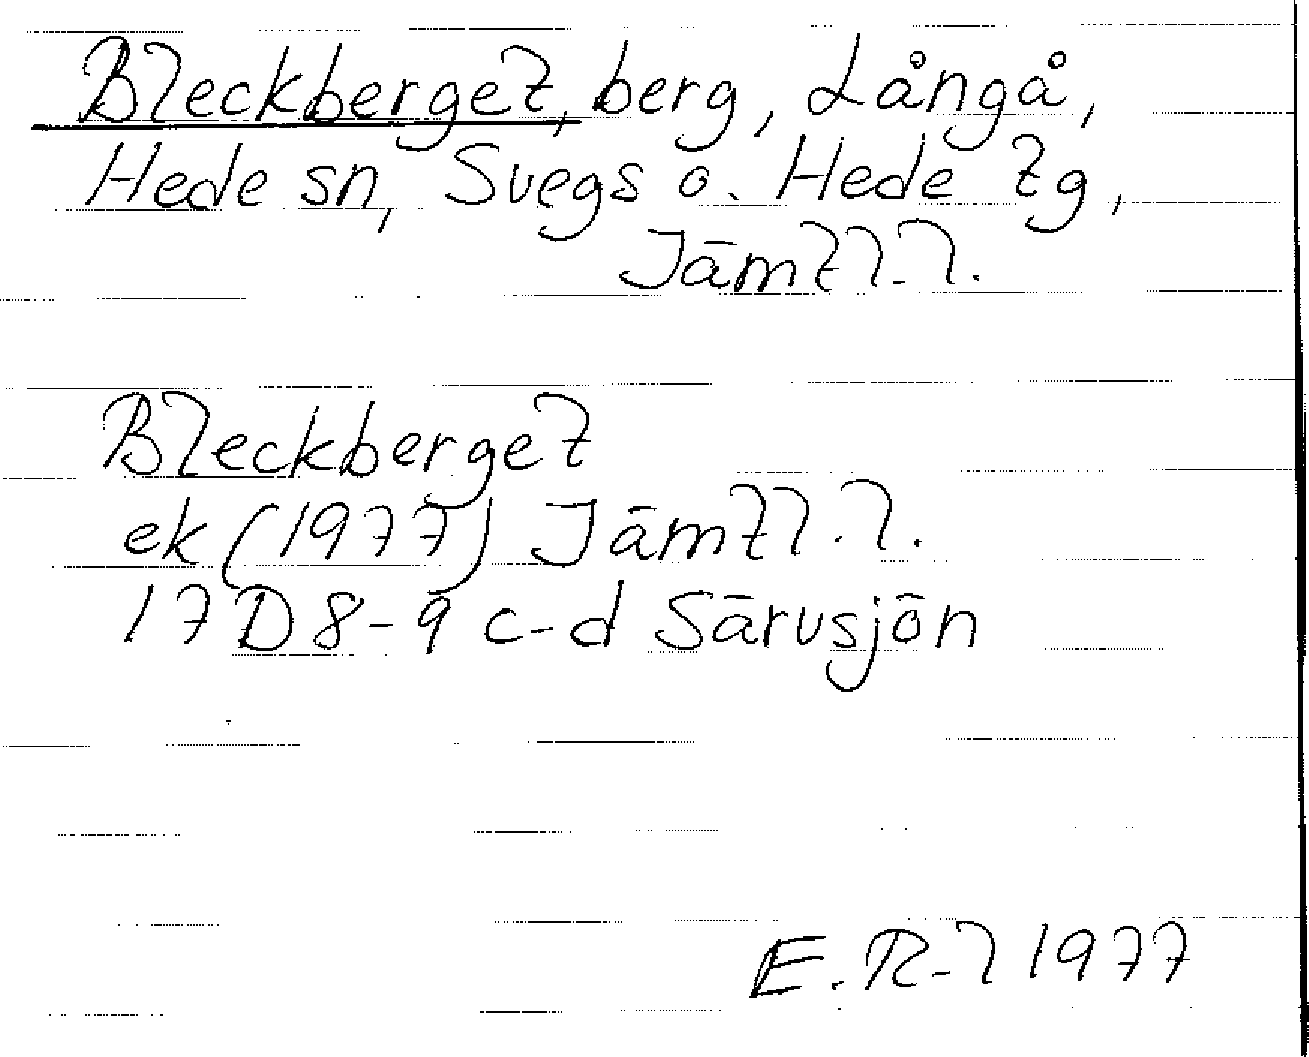 Bleckberget, berg, Långå,
Hede sn, Svegs o. Hede tg,
Jämtl. l.
Bleckberget
ek (1977) Jämtl. l.
17D 8-9 c-d Särvsjön
E. R-l 1977